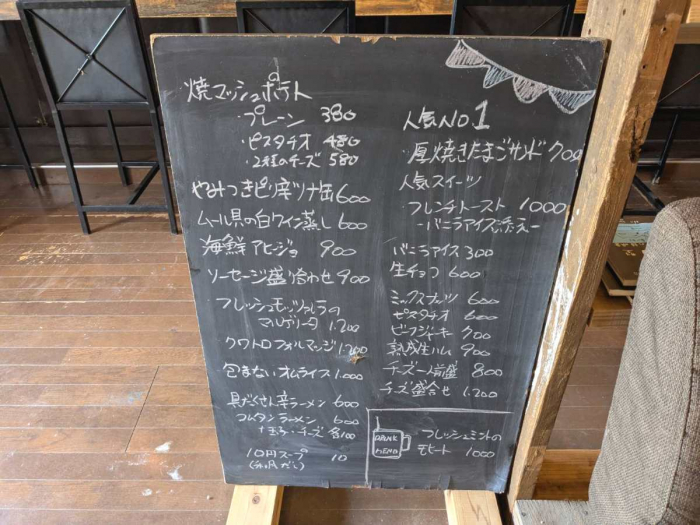 ・焼マッシュポテト
・プレーン 380
・ピスタチオ 480
・2種のチーズ 580
やみつきピリ辛ツナ缶 600
ムール貝の白ワイン蒸し 600
海鮮アヒージョ 900
ソーセージ盛り合わせ 900
フレッシュモッツァレラの
マルゲリータ 1.200
クワトロフォルマッジ 1.200
包まないオムライス 1.000
具だくせん辛ラーメン 600
コムタンラーメン 600
+玉子・チーズ 各100
10円スープ 10
(和風だし)
人気NO.1
・厚焼きたまごサンド 700
人気スイーツ
・フレンチトースト 1000
-バニラアイス添え-
バニラアイス 300
生チョコ 600
ミックスナッツ 600
ピスタチオ 600
ビーフジャーキー 700
熟成生ハム 900
チーズ一人前盛 800
チーズ盛合せ 1.200
DRINK
MENU
フレッシュミントの
モヒート 1000